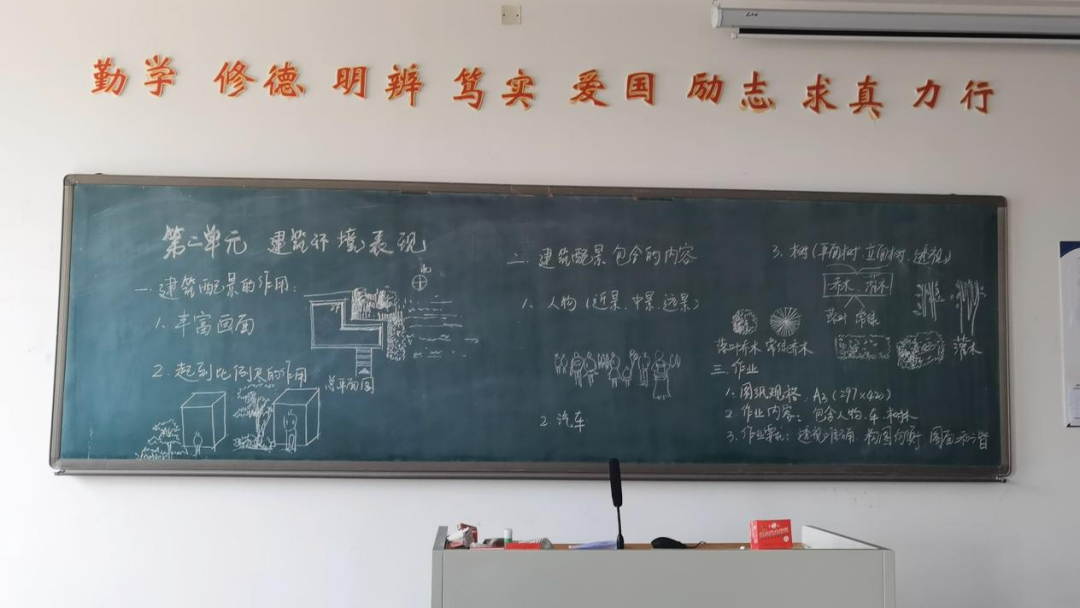 勤学 修德 明辨 笃实 爱国 励志 求真 力行
第二单元 建筑环境表现
一.建筑配景的作用:
1.丰富画面
2.起到比例尺的作用
总平面图
北
二.建筑配景包含的内容
1.人物(近景、中景、远景)
2.汽车
3.树(平面树、立面树、透视)
乔木、灌木
落叶 常绿
落叶乔木 常绿乔木
灌木
三.作业
1.图纸规格:A3(297×420)
2.作业内容:包含人物、车、树林
3.作业要求:透视准确 构图均衡 图面和谐